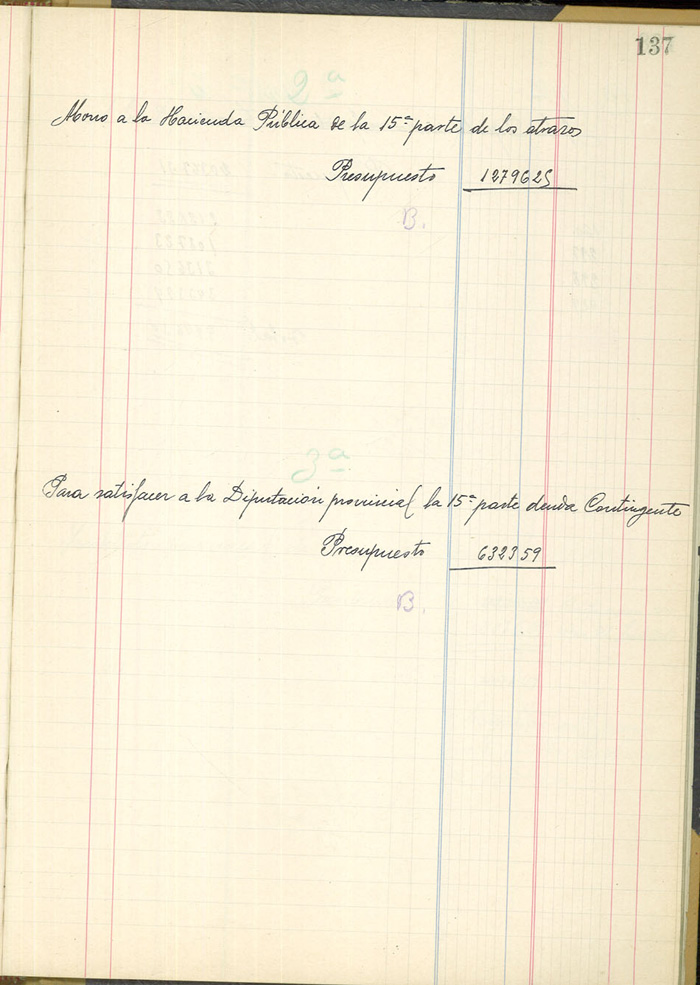 137
2ª
Abono a la Hacienda Pública de la 15ª parte de los atrazos
Presupuesto 1279625
B.
3ª
Para satisfacer a la Diputación provincial la 15ª parte deuda Contingente
Presupuesto 632359
B.